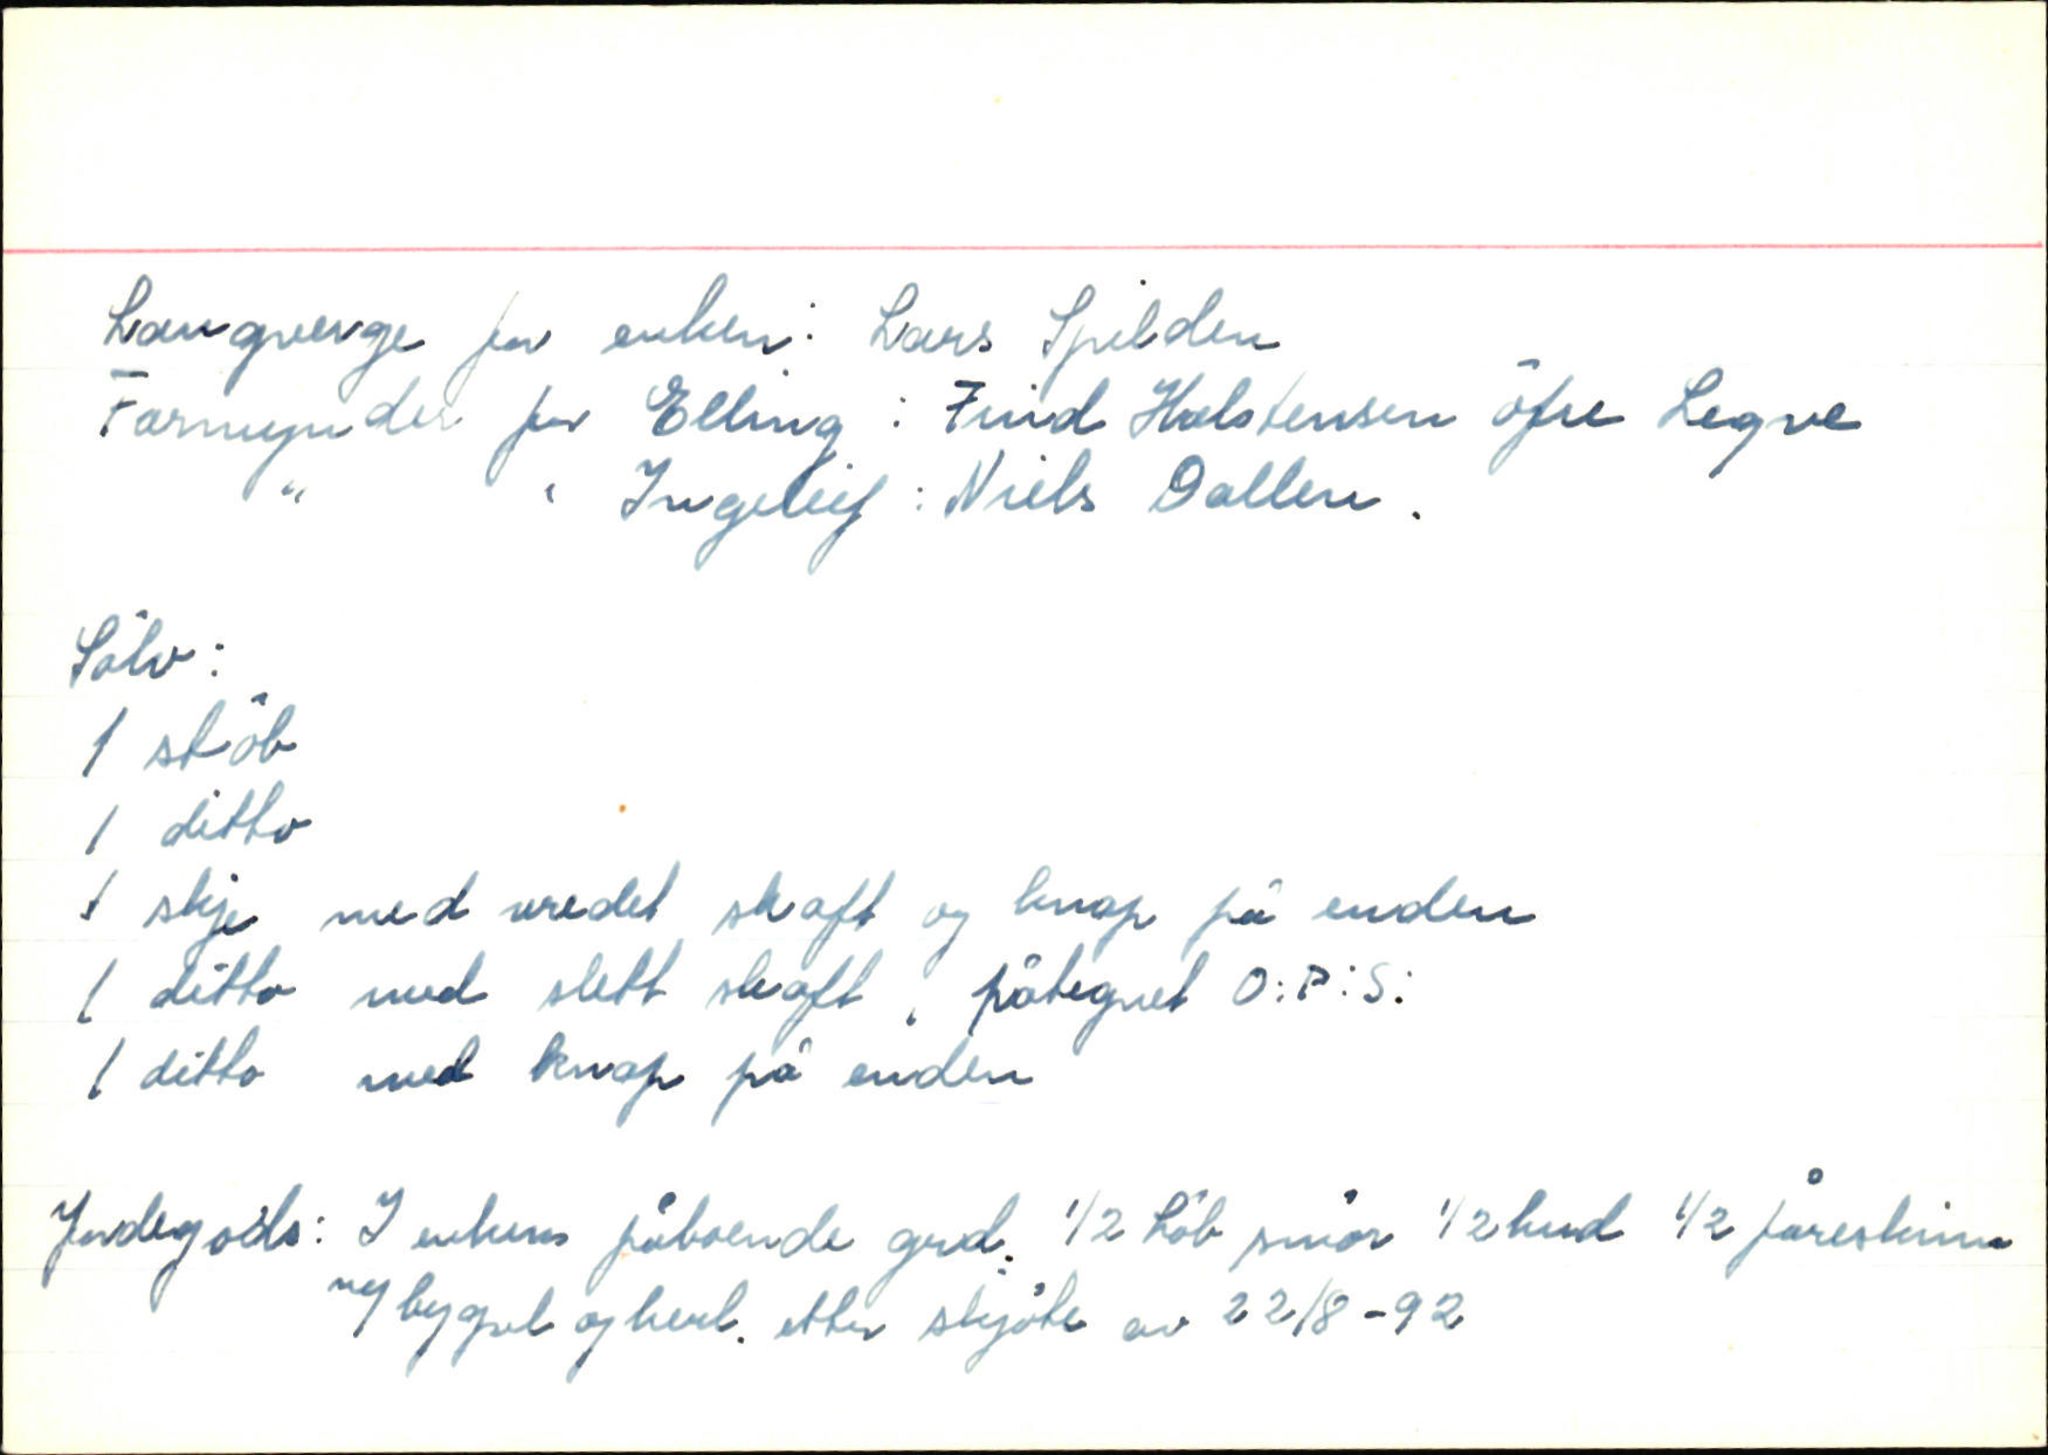 Laugverge for enken: Lars Spilden
Formynder for Elling: Find Halstensen öfre Legve
" " Ingeleif: Niels Dallen.
Sölv:
1 stöb
1 ditto
1 skje med vredet skaft og knap på enden
1 ditto med slett skaft, påtegnet O:P:S:
1 ditto med knap på enden
Jordegods: I enkens påboende grd. 1/2 Löb smör 1/2 hud 1/2 fåreskinn
m/ bygsel og herl. etter skjöte av 22/8-92